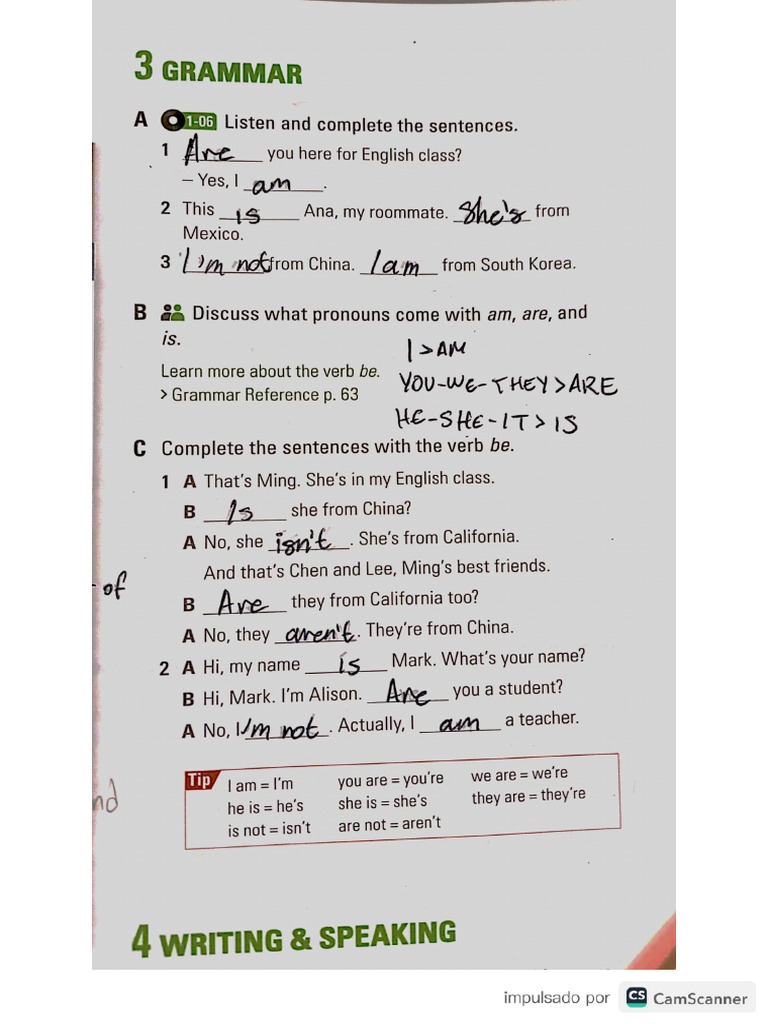 3 GRAMMAR
A 1-06 Listen and complete the sentences.
1 Are you here for English class?
– Yes, I am.
2 This is Ana, my roommate. She's from
Mexico.
3 I'm not from China. I am from South Korea.
B Discuss what pronouns come with am, are, and
is.
I > AM
Learn more about the verb be.
YOU-WE-THEY > ARE
> Grammar Reference p. 63
HE-SHE-IT > IS
C Complete the sentences with the verb be.
1 A That's Ming. She's in my English class.
B Is she from China?
A No, she isn't. She's from California.
And that's Chen and Lee, Ming's best friends.
of
B Are they from California too?
A No, they aren't. They're from China.
2 A Hi, my name is Mark. What's your name?
B Hi, Mark. I'm Alison. Are you a student?
A No, I'm not. Actually, I am a teacher.
Tip
I am = I'm you are = you're we are = we're
he is = he's she is = she's they are = they're
nd
is not = isn't are not = aren't
4 WRITING & SPEAKING
impulsado por CS CamScanner